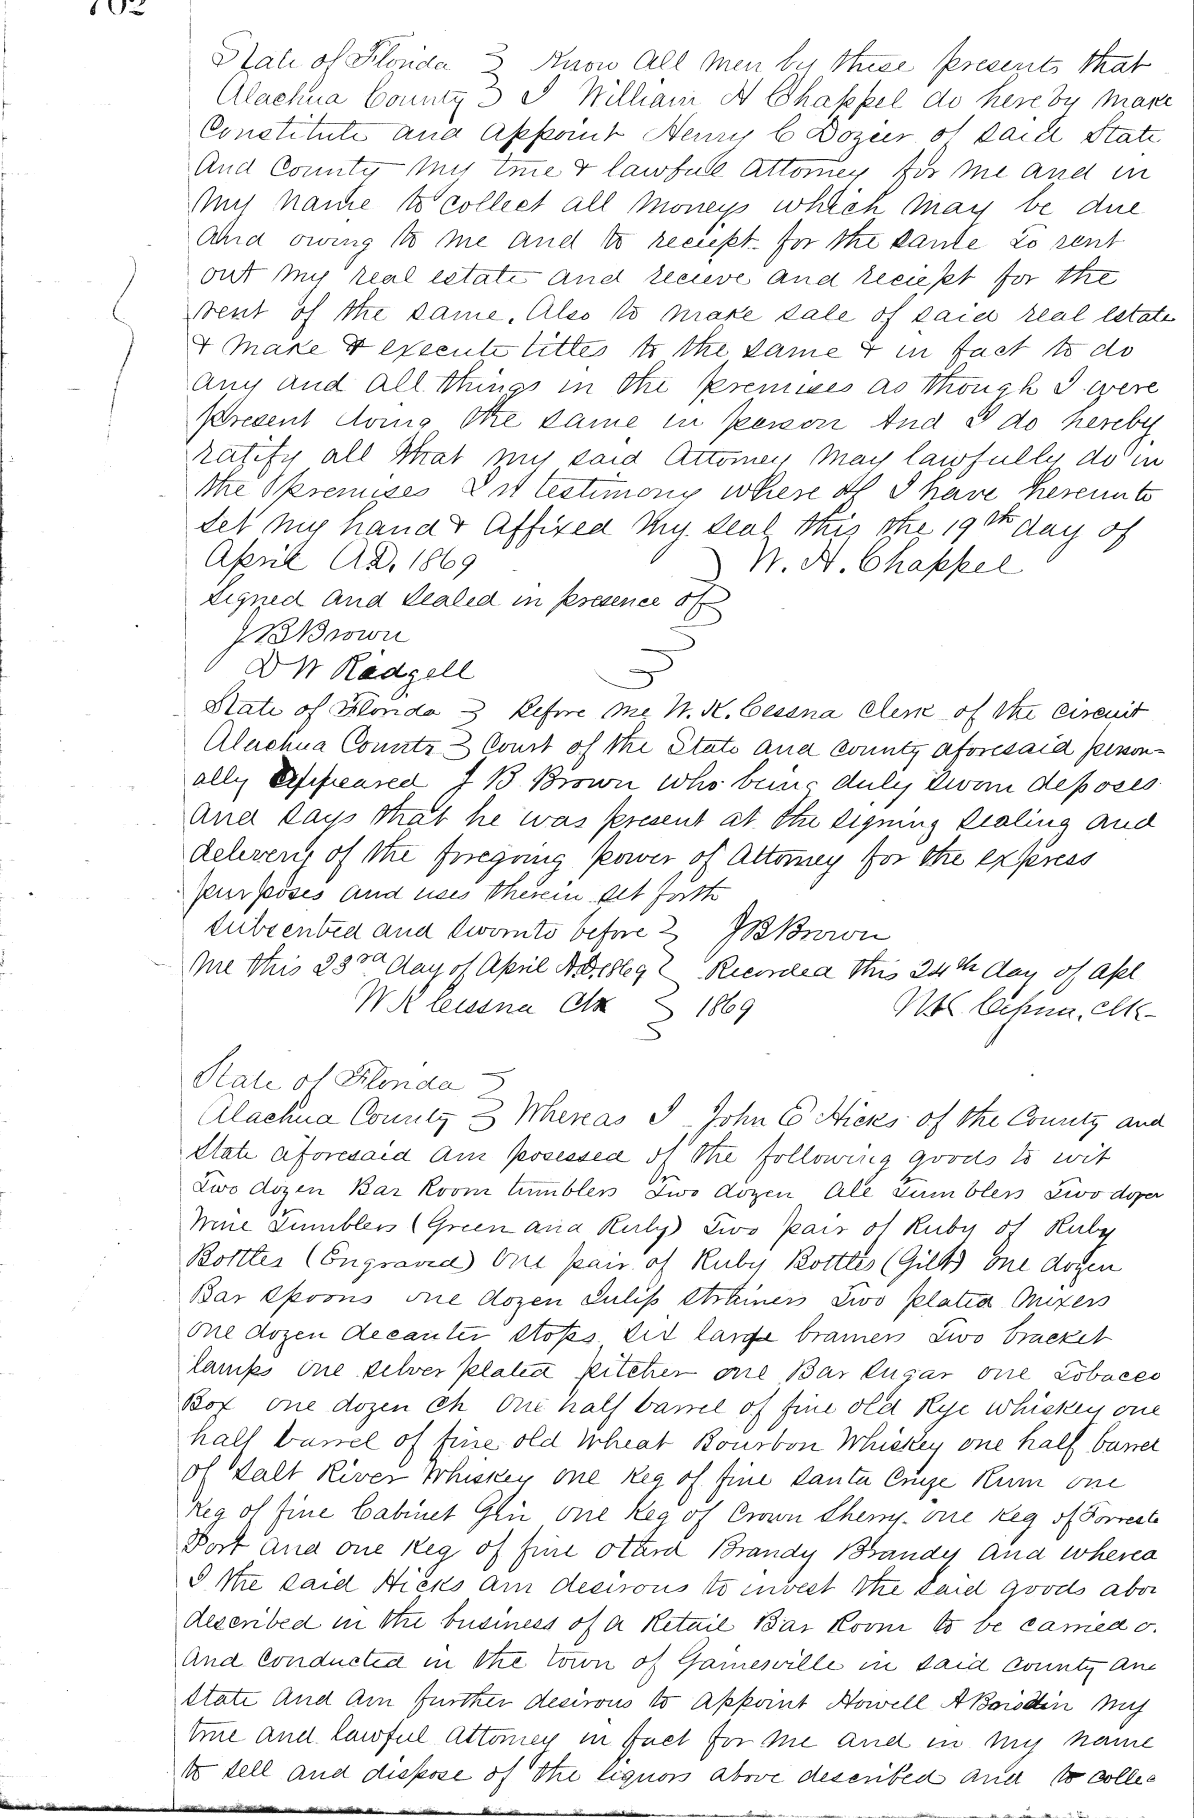 702
State of Florida } Know All Men by these presents that
Alachua County } I William H Chappel do hereby make
Constitute and appoint Henry C Dozier of said State
And County my true & lawfull attorney for me and in
my name to collect all moneys which may be due
and owing to me and to reciept for the same to rent
out my real estate and recieve and reciept for the
rent of the same. Also to make sale of said real estate
& make & execute titles to the same & in fact to do
any and all things in the premises as though I were
present doing the same in person And I do hereby
ratify all that my said Attorney may lawfully do in
the premises In testimony where of I have hereunto
set my hand & Affixed my seal this the 19th day of
April A.D. 1869 W. H. Chappel
signed and sealed in presence of
J B Brown
D W Radgell
State of Florida } Before me W. K. Cessna Clerk of the circuit
Alachua County } Court of the State and county aforesaid person-
ally appeared J B Brown who being duly sworn deposes
and says that he was present at the signing sealing and
delivery of the foregoing power of Attorney for the express
purposes and uses therein set forth
subscribed and sworn to before } J B Brown
me this 23rd day of April A.D. 1869 } Recorded this 24th day of Apl
W K Cessna Clk } 1869 W K Cessna, Clk-
State of Florida }
Alachua County } Whereas I John E Hicks of the County and
State aforesaid am posessed of the following goods to wit
Two dozen Bar Room tumblers Two dozen Ale Tumblers Two dozen
Wine Tumblers (Green and Ruby) Two pair of Ruby of Ruby
Bottles (Engraved) One pair of Ruby Bottles (Gilt) one dozen
Bar spoons one dozen Julip Strainers Two plated Mixers
one dozen decanter stops six large bramers Two bracket
lamps one silver plated pitcher one Bar Sugar one Tobacco
Box one dozen Ch One half barrel of fine old Rye whiskey one
half barrel of fine old Wheat Bourbon Whiskey one half barrel
of Salt River Whiskey one keg of fine Santa Cruze Rum one
Keg of fine Cabinet Gin one Keg of Crown Sherry. one Keg of Forrests
Port and one Keg of fine Otard Brandy Brandy and wherea
I the said Hicks am desirous to invest the said goods abov
described in the business of a Retail Bar Room to be carried o
and conducted in the town of Gainesville in said county and
State and am further desirous to appoint Howell A my
true and lawful Attorney in fact for me and in my name
to sell and dispose of the liquors above described and to collec